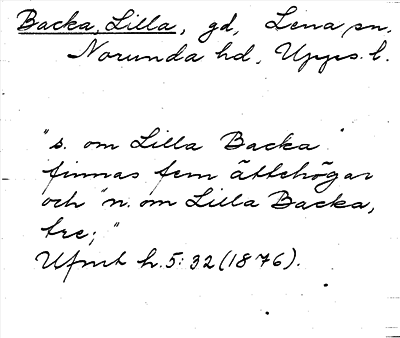 Backa, Lilla, gd, Lena sn.
Norunda hd, Upps. l.
"s. om Lilla Backa"
finnas fem ättehögar
och "n. om Lilla Backa,
tre;"
Ufmt h.5:32 (1876).